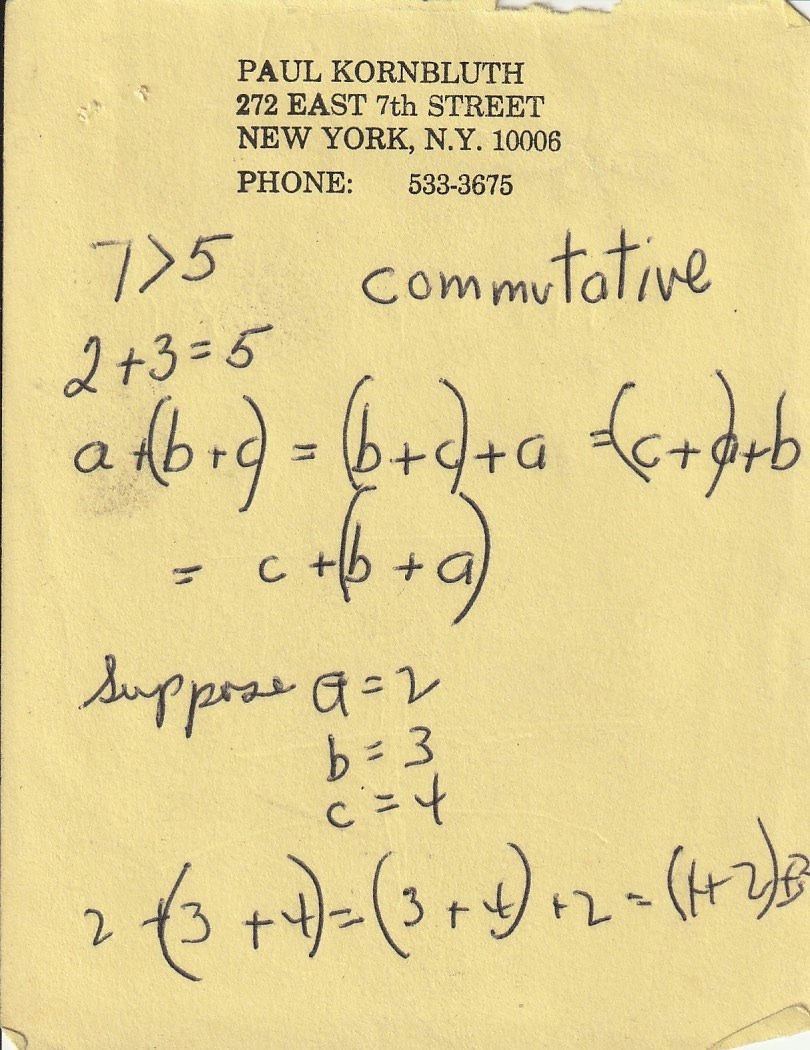 PAUL KORNBLUTH
272 EAST 7th STREET
NEW YORK, N.Y. 10006
PHONE: 533-3675
7>5 commutative
2+3=5
a+(b+c) = (b+c)+a =(c+a)+b
= c+(b+a)
Suppose a=2
b=3
c=4
2+(3+4)=(3+4)+2=(4+2)+3